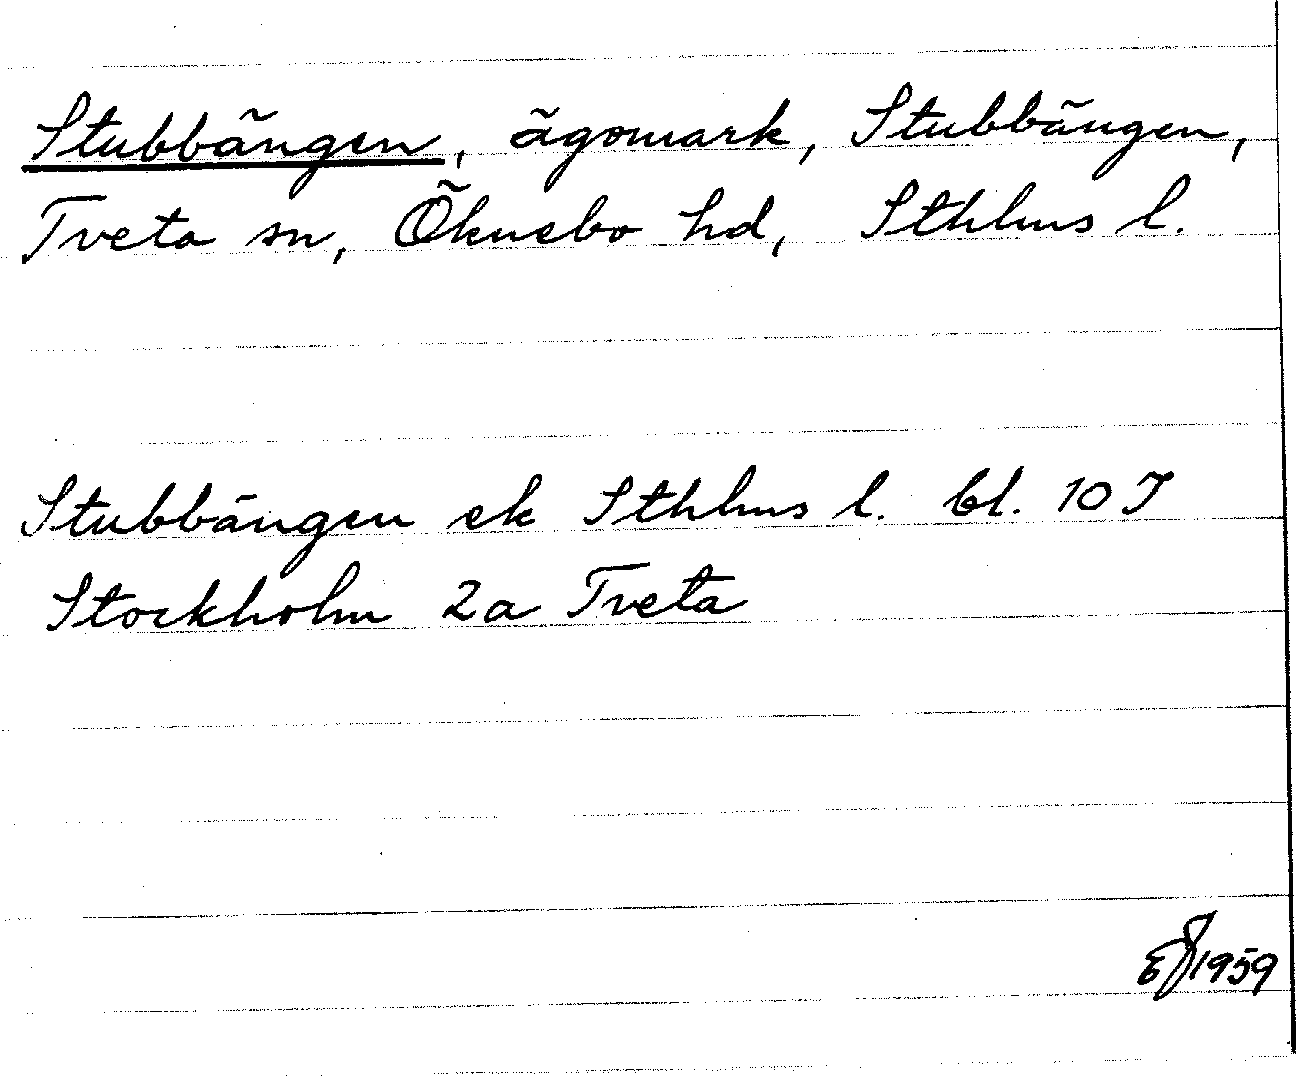 Stubbängen, ägomark, Stubbängen,
Tveta sn, Öknebo hd, Sthlms l.
Stubbängen ek Sthlms l. bl. 10 I
Stockholm 2a Tveta
1959